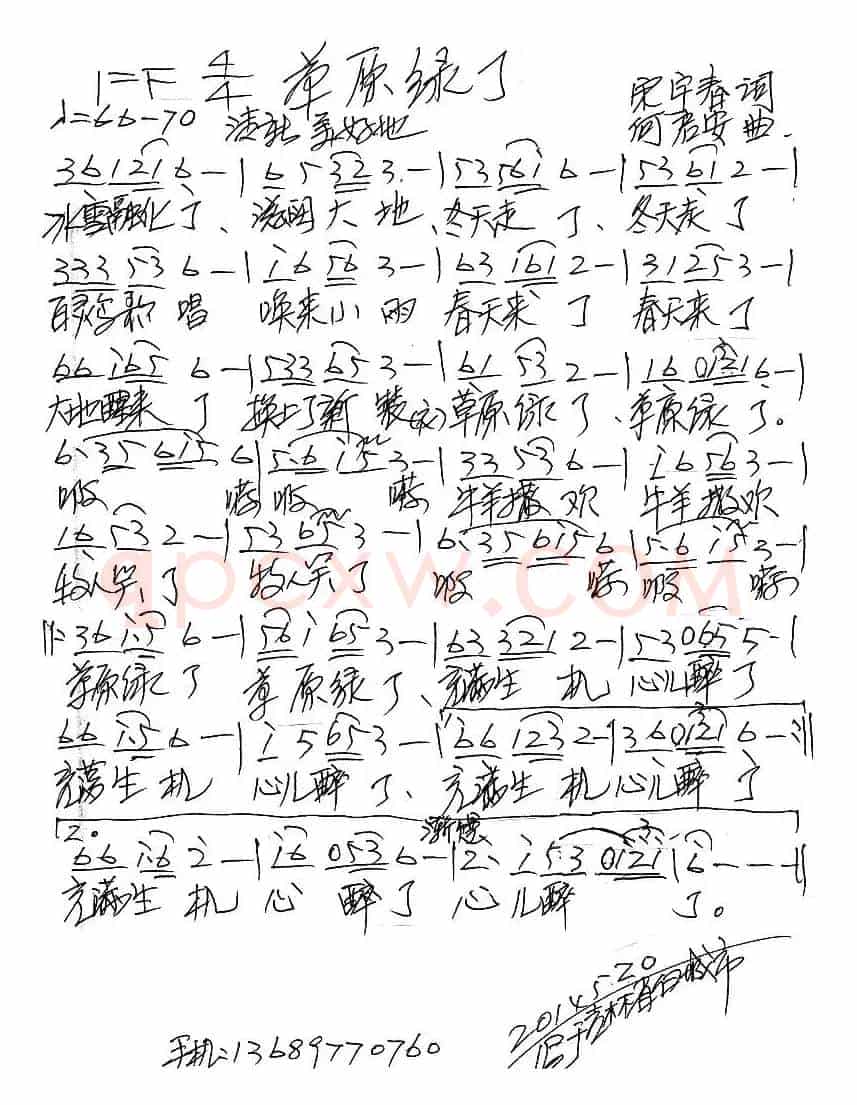 1=F 4/4 草原绿了
♩=66-70 清新 美好地
宋宇春 词
何君安 曲
36 121 6 - | 6 5 323. - | 53 561 6 - | 53 61 2 - |
冰雪融化了、滋润大地、冬天走了、冬天走了
333 53 6 - | i 6 56 3 - | 63 161 2 - | 31 25 3 - |
百灵鸟歌唱 唤来小雨 春天来了 春天来了
66 i65 6 - | 533 65 3 - | 61 53 2 - | 16 0121 6 - |
大地醒来了 换上了新装 草原绿了、草原绿了。
6. 35 615 6 | 5.6 i5 3 - | 33 53 6 - | i6 56 3 - |
呀 嗬 呀 嗬 牛羊撒欢 牛羊撒欢
16 53 2 - | 53 65 3 - | 6. 35 615 6 | 5.6 i5 3 - |
牧人笑了 牧人笑了 呀 嗬 呀 嗬
qpcxw.COM
‖: 36 i.5 6 - | 56 i 65 3 - | 63 321 2 - | 53 065 5 - |
草原绿了 草原绿了、充满生机 心儿醉了
1.
66 i.5 6 - | i 5 65 3 - | 66 123 2 - | 36 0121 6 - :‖
充满生机 心儿醉了、充满生机 心儿醉了
2. 渐慢
66 i.6 2 - | i6 053 6 - | 2. i 5.3 0121 | i - - - ‖
充满生机 心醉了 心儿醉 了。
2014.5.20
于吉林省白城市
手机:13689770760